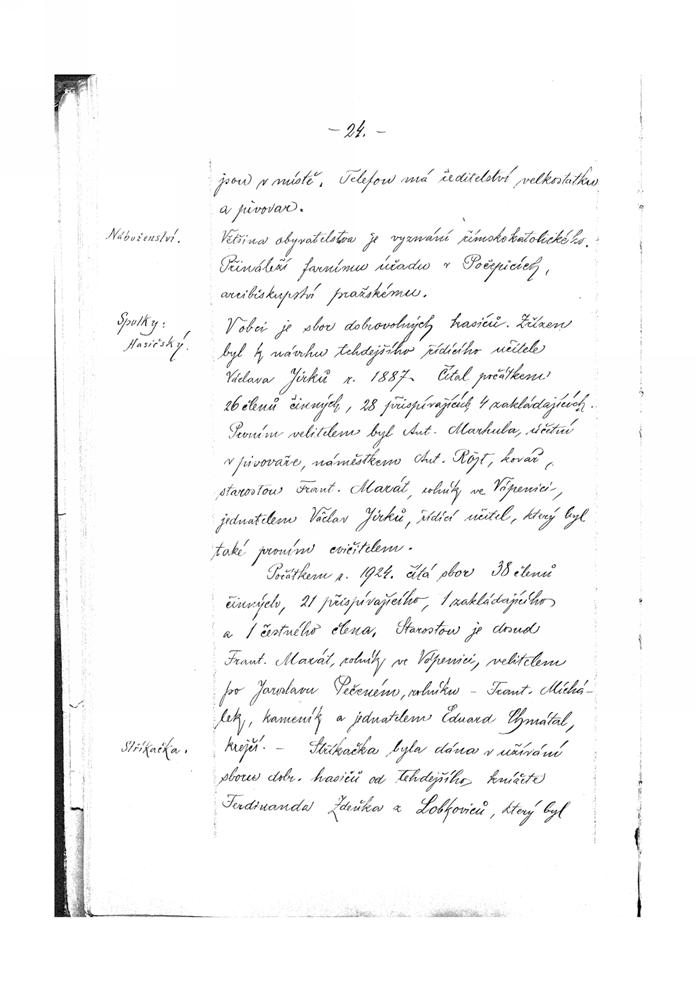 - 24. -
jsou v místě. Telefon má ředitelství velkostatku
a pivovar.
Náboženství.
Většina obyvatelstva je vyznání římskokatolického.
Přináleží farnímu úřadu v Počepicích,
arcibiskupství pražskému.
Spolky:
Hasičský.
V obci je sbor dobrovolných hasičů. Zřízen
byl k návrhu tehdejšího řídícího učitele
Václava Jirků r. 1887. Čítal počátkem
26 členů činných, 28 přispívajících 4 zakládajících.
Prvním velitelem byl Ant. Marhula, účetní
v pivovaře, náměstkem Ant. Röjt, kovář,
starostou Frant. Marát, rolník ve Vápenici,
jednatelem Václav Jirků, řídící učitel, který byl
také prvním cvičitelem.
Počátkem r. 1924. čítá sbor 38 členů
činných, 21 přispívajícího, 1 zakládajícího
a 1 čestného člena. Starostou je dosud
Frant. Marát, rolník ve Vápenici, velitelem
po Jaroslavu Pečeném, rolníku - Frant. Michá-
lek, kameník a jednatelem Eduard Chmátal,
Stříkačka.
krejčí. - Stříkačka byla dána v užívání
sboru dobr. hasičů od tehdejšího knížete
Ferdinanda Zdeňka z Lobkoviců, který byl